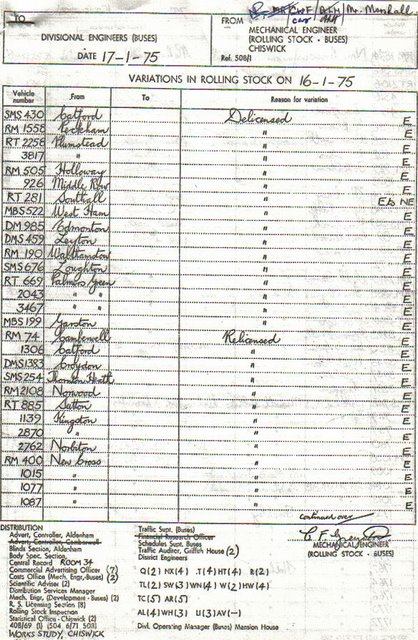 TO
DIVISIONAL ENGINEERS (BUSES)
DATE 17-1-75
FROM
CWF / DLH / Mr. Marshall
MECHANICAL ENGINEER
(ROLLING STOCK - BUSES)
CHISWICK
Ref. 508/1
VARIATIONS IN ROLLING STOCK ON 16-1-75
Vehicle number From To Reason for variation
SMS 430 Catford Delicensed E
RM 1558 Peckham " E
RT 2258 Plumstead " E
3817 " " E
RM 505 Holloway " E
926 Middle Row " E
RT 281 Southall " Els NE
MBS 522 West Ham " E
DM 985 Edmonton " E
DMS 459 Leyton " E
RM 190 Walthamstow " E
SMS 676 Loughton " E
RT 669 Palmers Green " E
2043 " " " E
3467 " " " E
MBS 199 Garston " E
RM 74 Camberwell Relicensed E
1306 Catford " E
DMS 1383 Croydon " E
SMS 254 Thornton Heath " E
RM 2108 Norwood " E
RT 885 Sutton " E
1139 Kingston " E
2870 " " E
2762 Norbiton " E
RM 400 New Cross " E
1015 " " E
1077 " " E
1087 " " E
continued over
MECHANICAL ENGINEER
(ROLLING STOCK - BUSES)
DISTRIBUTION
Advert. Controller, Aldenham
Advert. Controller, Camberwell
Blinds Section, Aldenham
Body Spec. Section
Central Record ROOM 34
Commercial Advertising Officer (7)
Costs Office (Mech. Engr. Buses) (2)
Scientific Adviser (2)
Distribution Services Manager
Mech. Engr. (Development - Buses) (5)
R. S. Licensing Section (8)
Rolling Stock Inspectors
Statistical Office - Chiswick (2)
408/69 (1) (504 6/71 503)
WORKS STUDY, CHISWICK
Traffic Supt. (Buses)
Financial Research Officer
Schedules Supt. Buses
Traffic Auditor, Griffith House (2)
District Engineers
Q(2) NX(4) T(4) HT(4) R(2)
TL(2) SW(3) WN(4) W(2) HW(4)
TC(5) AR(5)
AL(4) WH(3) U(3) AV(-)
Divl. Operating Manager (Buses) Mansion House